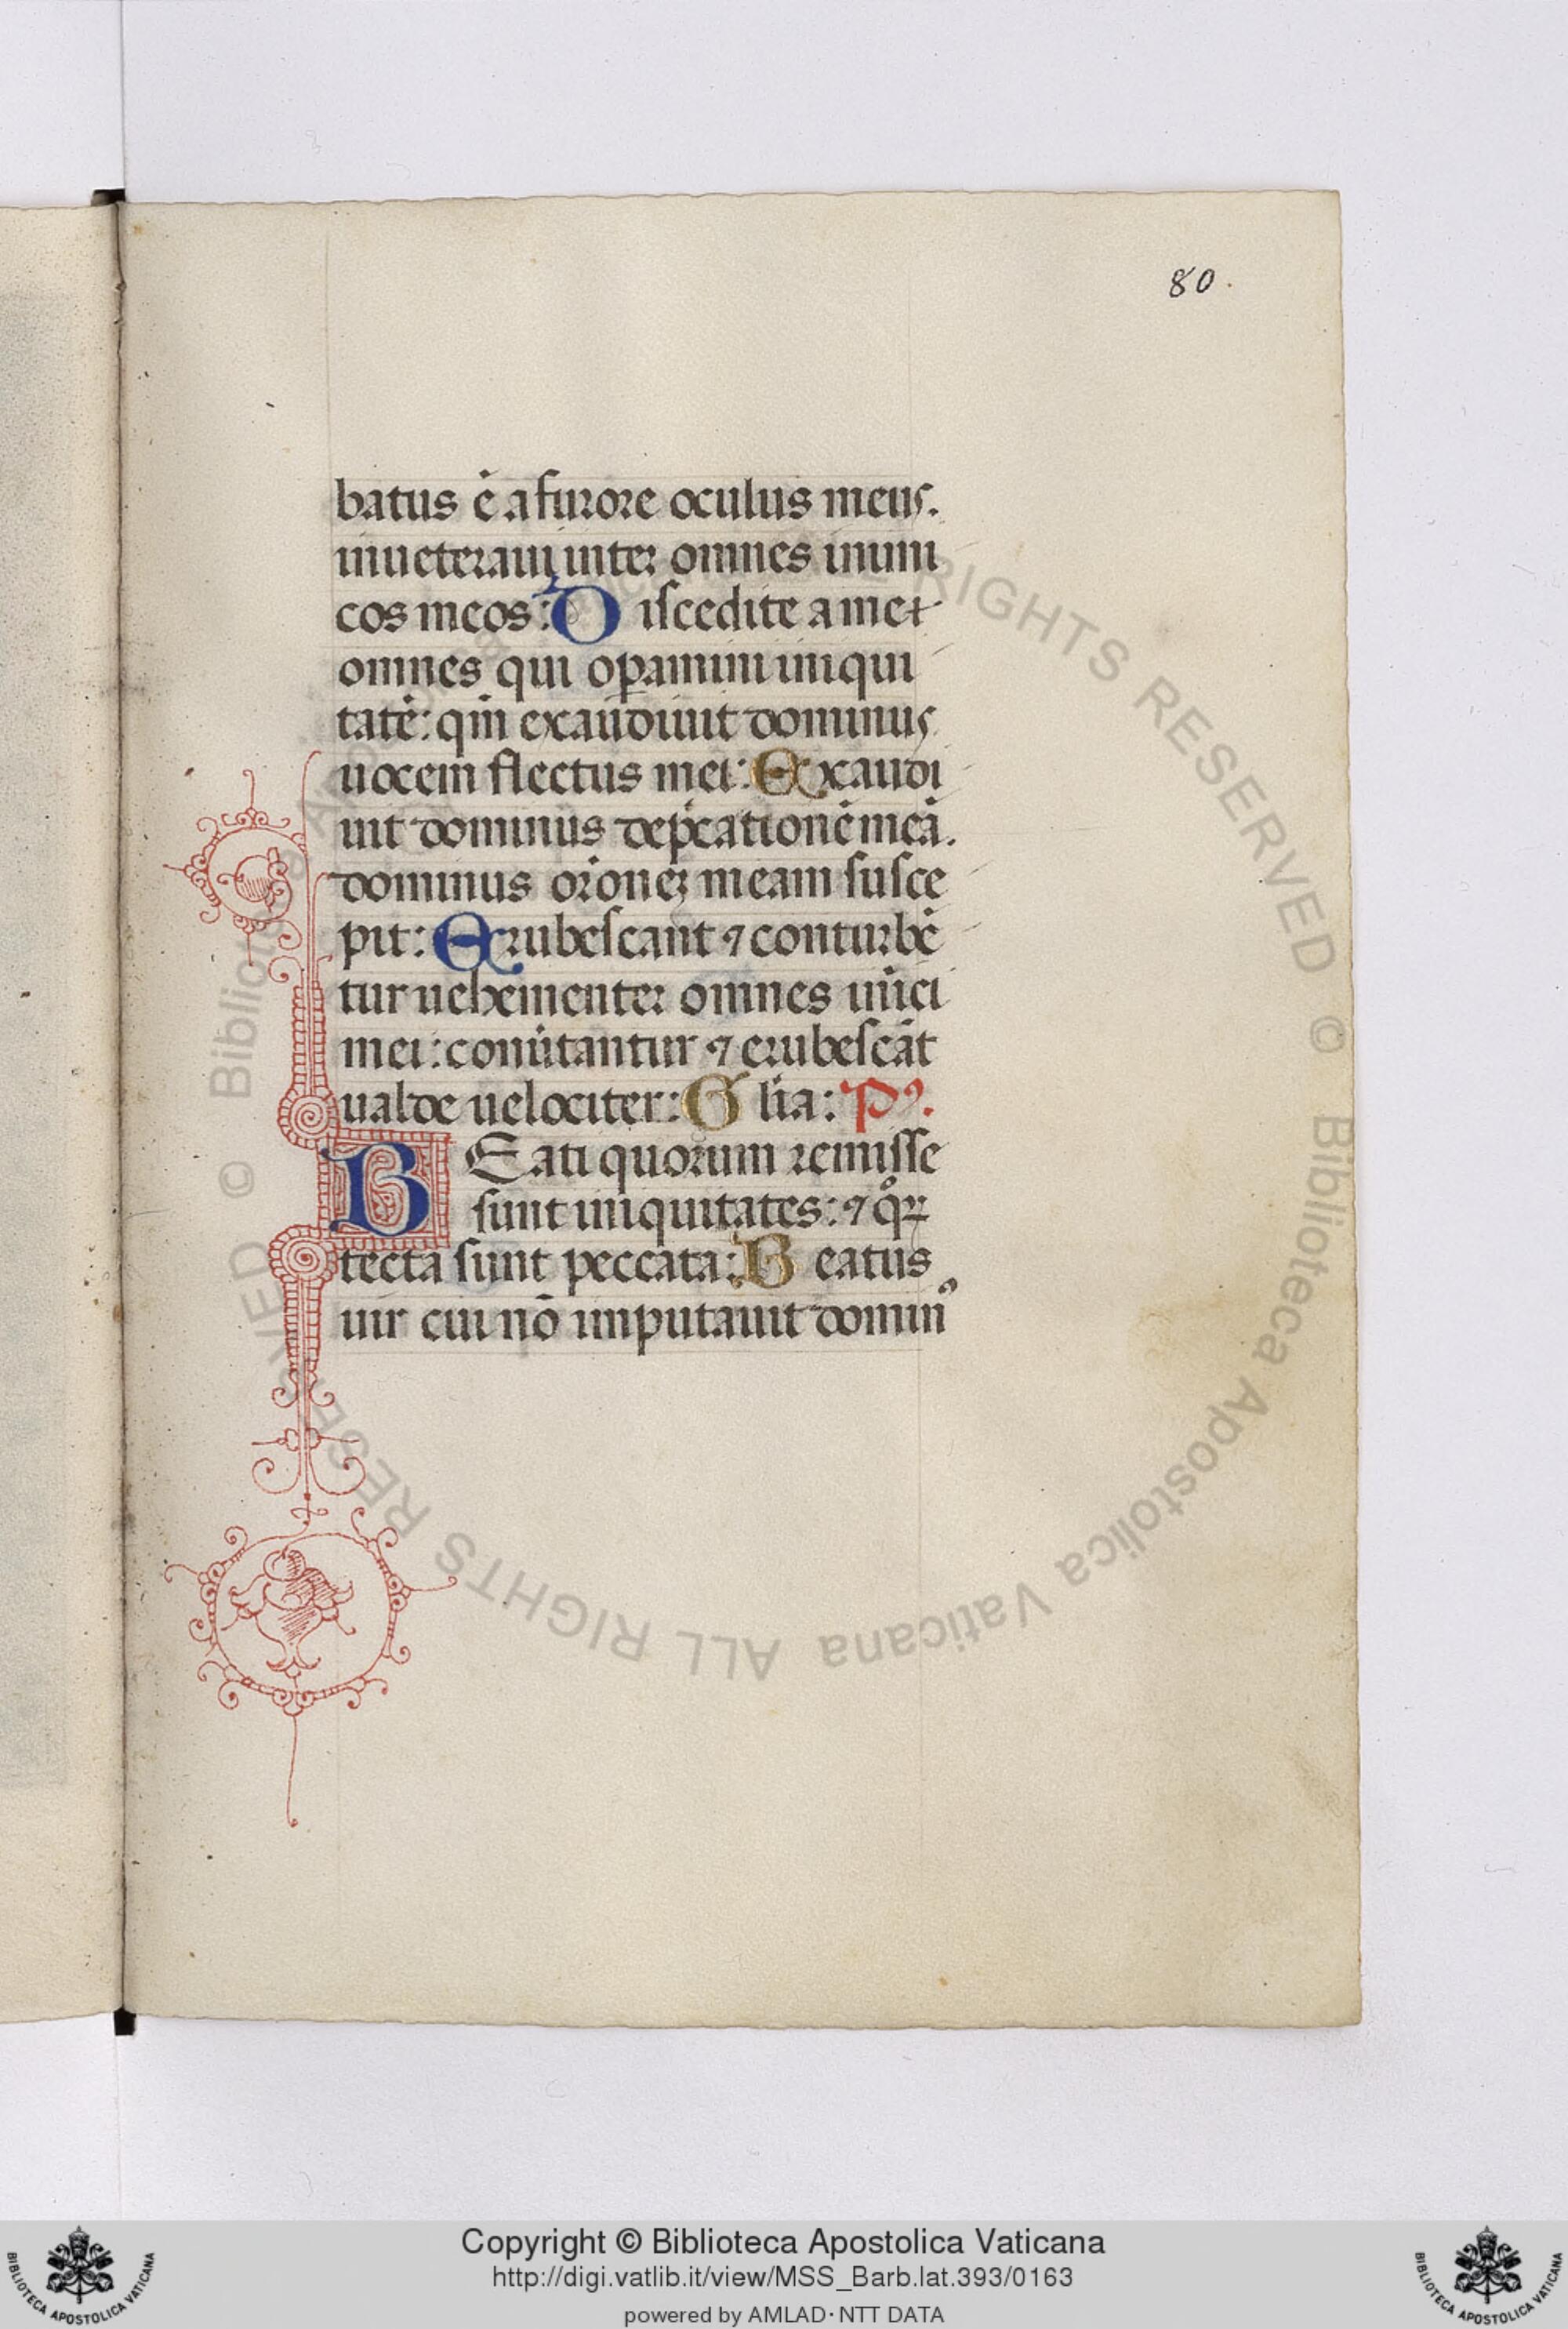 80.
batus ē a furore oculus meus.
inueteraui inter omnes inimi
cos meos: Discedite a me
omnes qui oꝑamini iniqui
tatē: qm̄ exaudiuit dominus
uocem flectus mei: Exaudi
uit dominus dep̄cationē meā.
dominus or̄oneꝫ meam susce
pit: Erubescant ⁊ conturbē
tur uehementer omnes inīci
mei: conūtantur ⁊ erubescāt
ualde uelociter: Gl̄ia: Pꝰ.
BEati quorum remisse
sunt iniquitates: ⁊ qͦꝝ
tecta sunt peccata: Beatus
uir cui nō imputauit dominꝰ
© Biblioteca Apostolica Vaticana ALL RIGHTS RESERVED
Copyright © Biblioteca Apostolica Vaticana
http://digi.vatlib.it/view/MSS_Barb.lat.393/0163
powered by AMLAD·NTT DATA
BIBLIOTECA APOSTOLICA VATICANA
BIBLIOTECA APOSTOLICA VATICANA